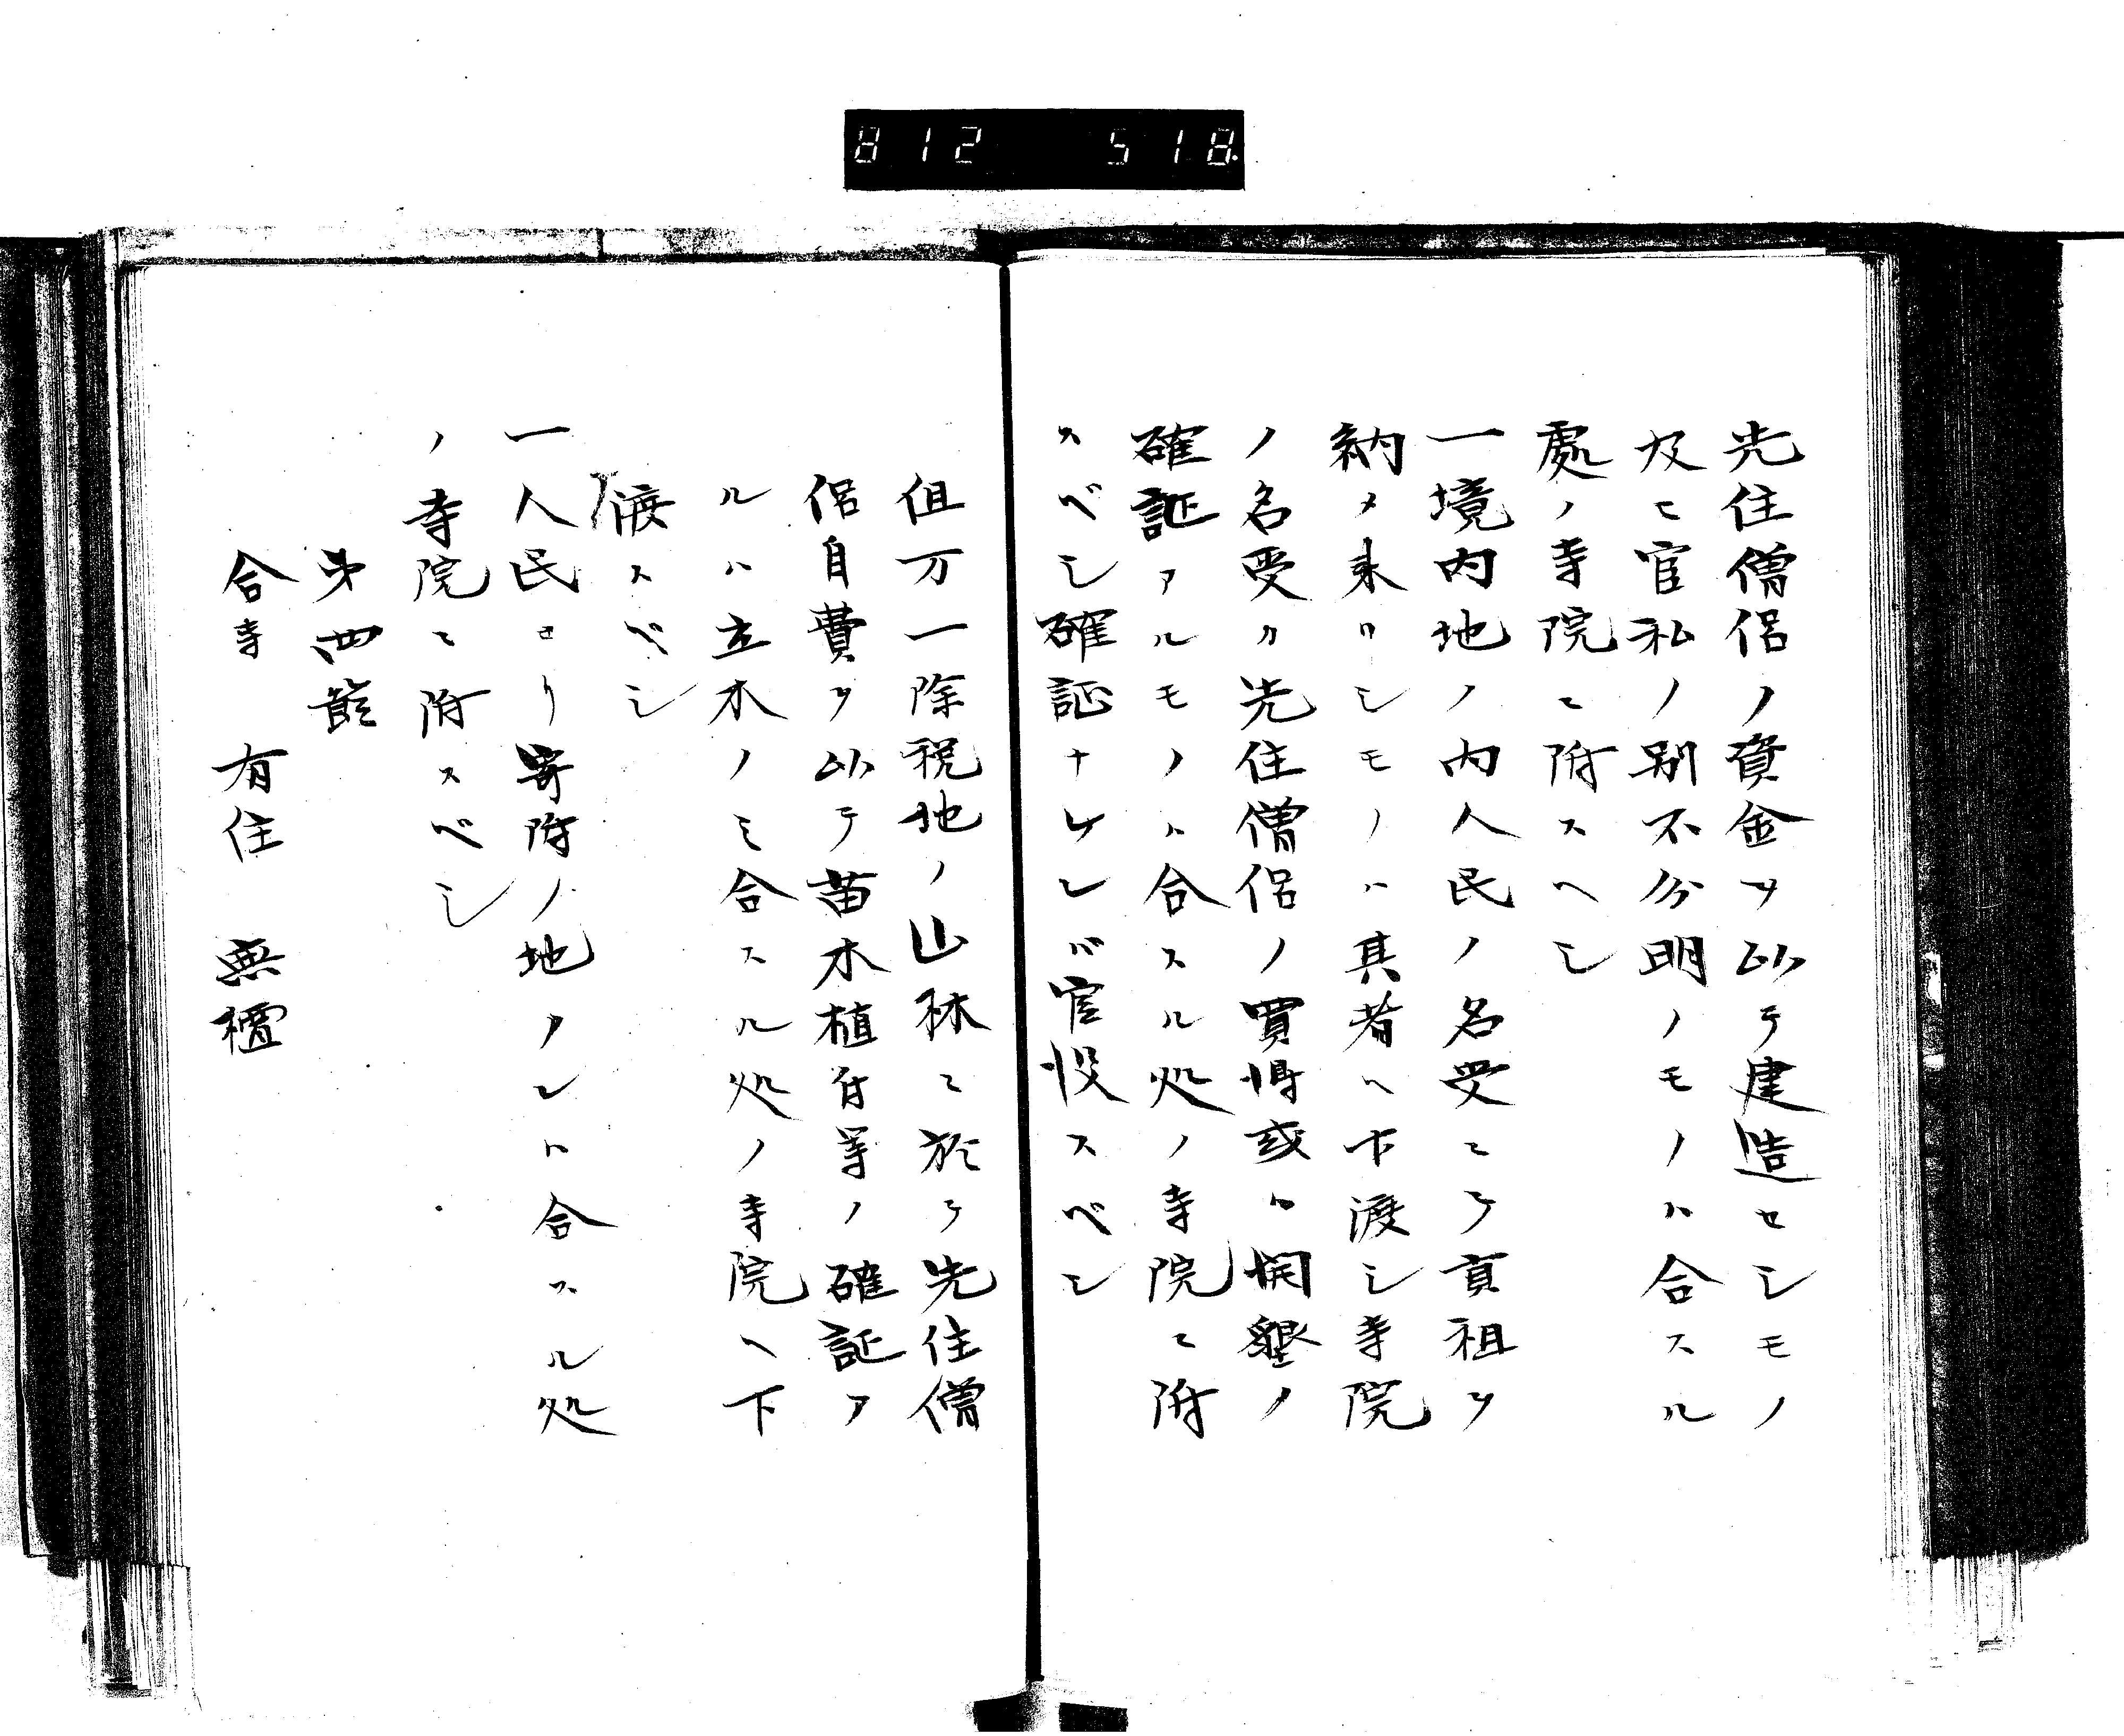 812 518.
先住僧侶ノ資金ヲ以テ建造セシモノ
及ヒ官私ノ別不分明ノモノハ合スル
處ノ寺院ニ附スヘシ
一境内地ノ内人民ノ名受ニテ貢祖ヲ
納メ来リシモノハ其者ヘ下渡シ寺院
ノ名受カ先住僧侶ノ買得或ハ開墾ノ
確証アルモノハ合スル処ノ寺院ニ附
スベシ確証ナケレバ官没スベシ
但万一除税地ノ山林ニ於テ先住僧
侶自費ヲ以テ苗木植付等ノ確証ア
ルハ立木ノミ合スル処ノ寺院ヘ下
渡スベシ
一人民ヨリ寄附ノ地ノレハ合スル処
ノ寺院ニ附スベシ
第四款
合寺 有住 無檀